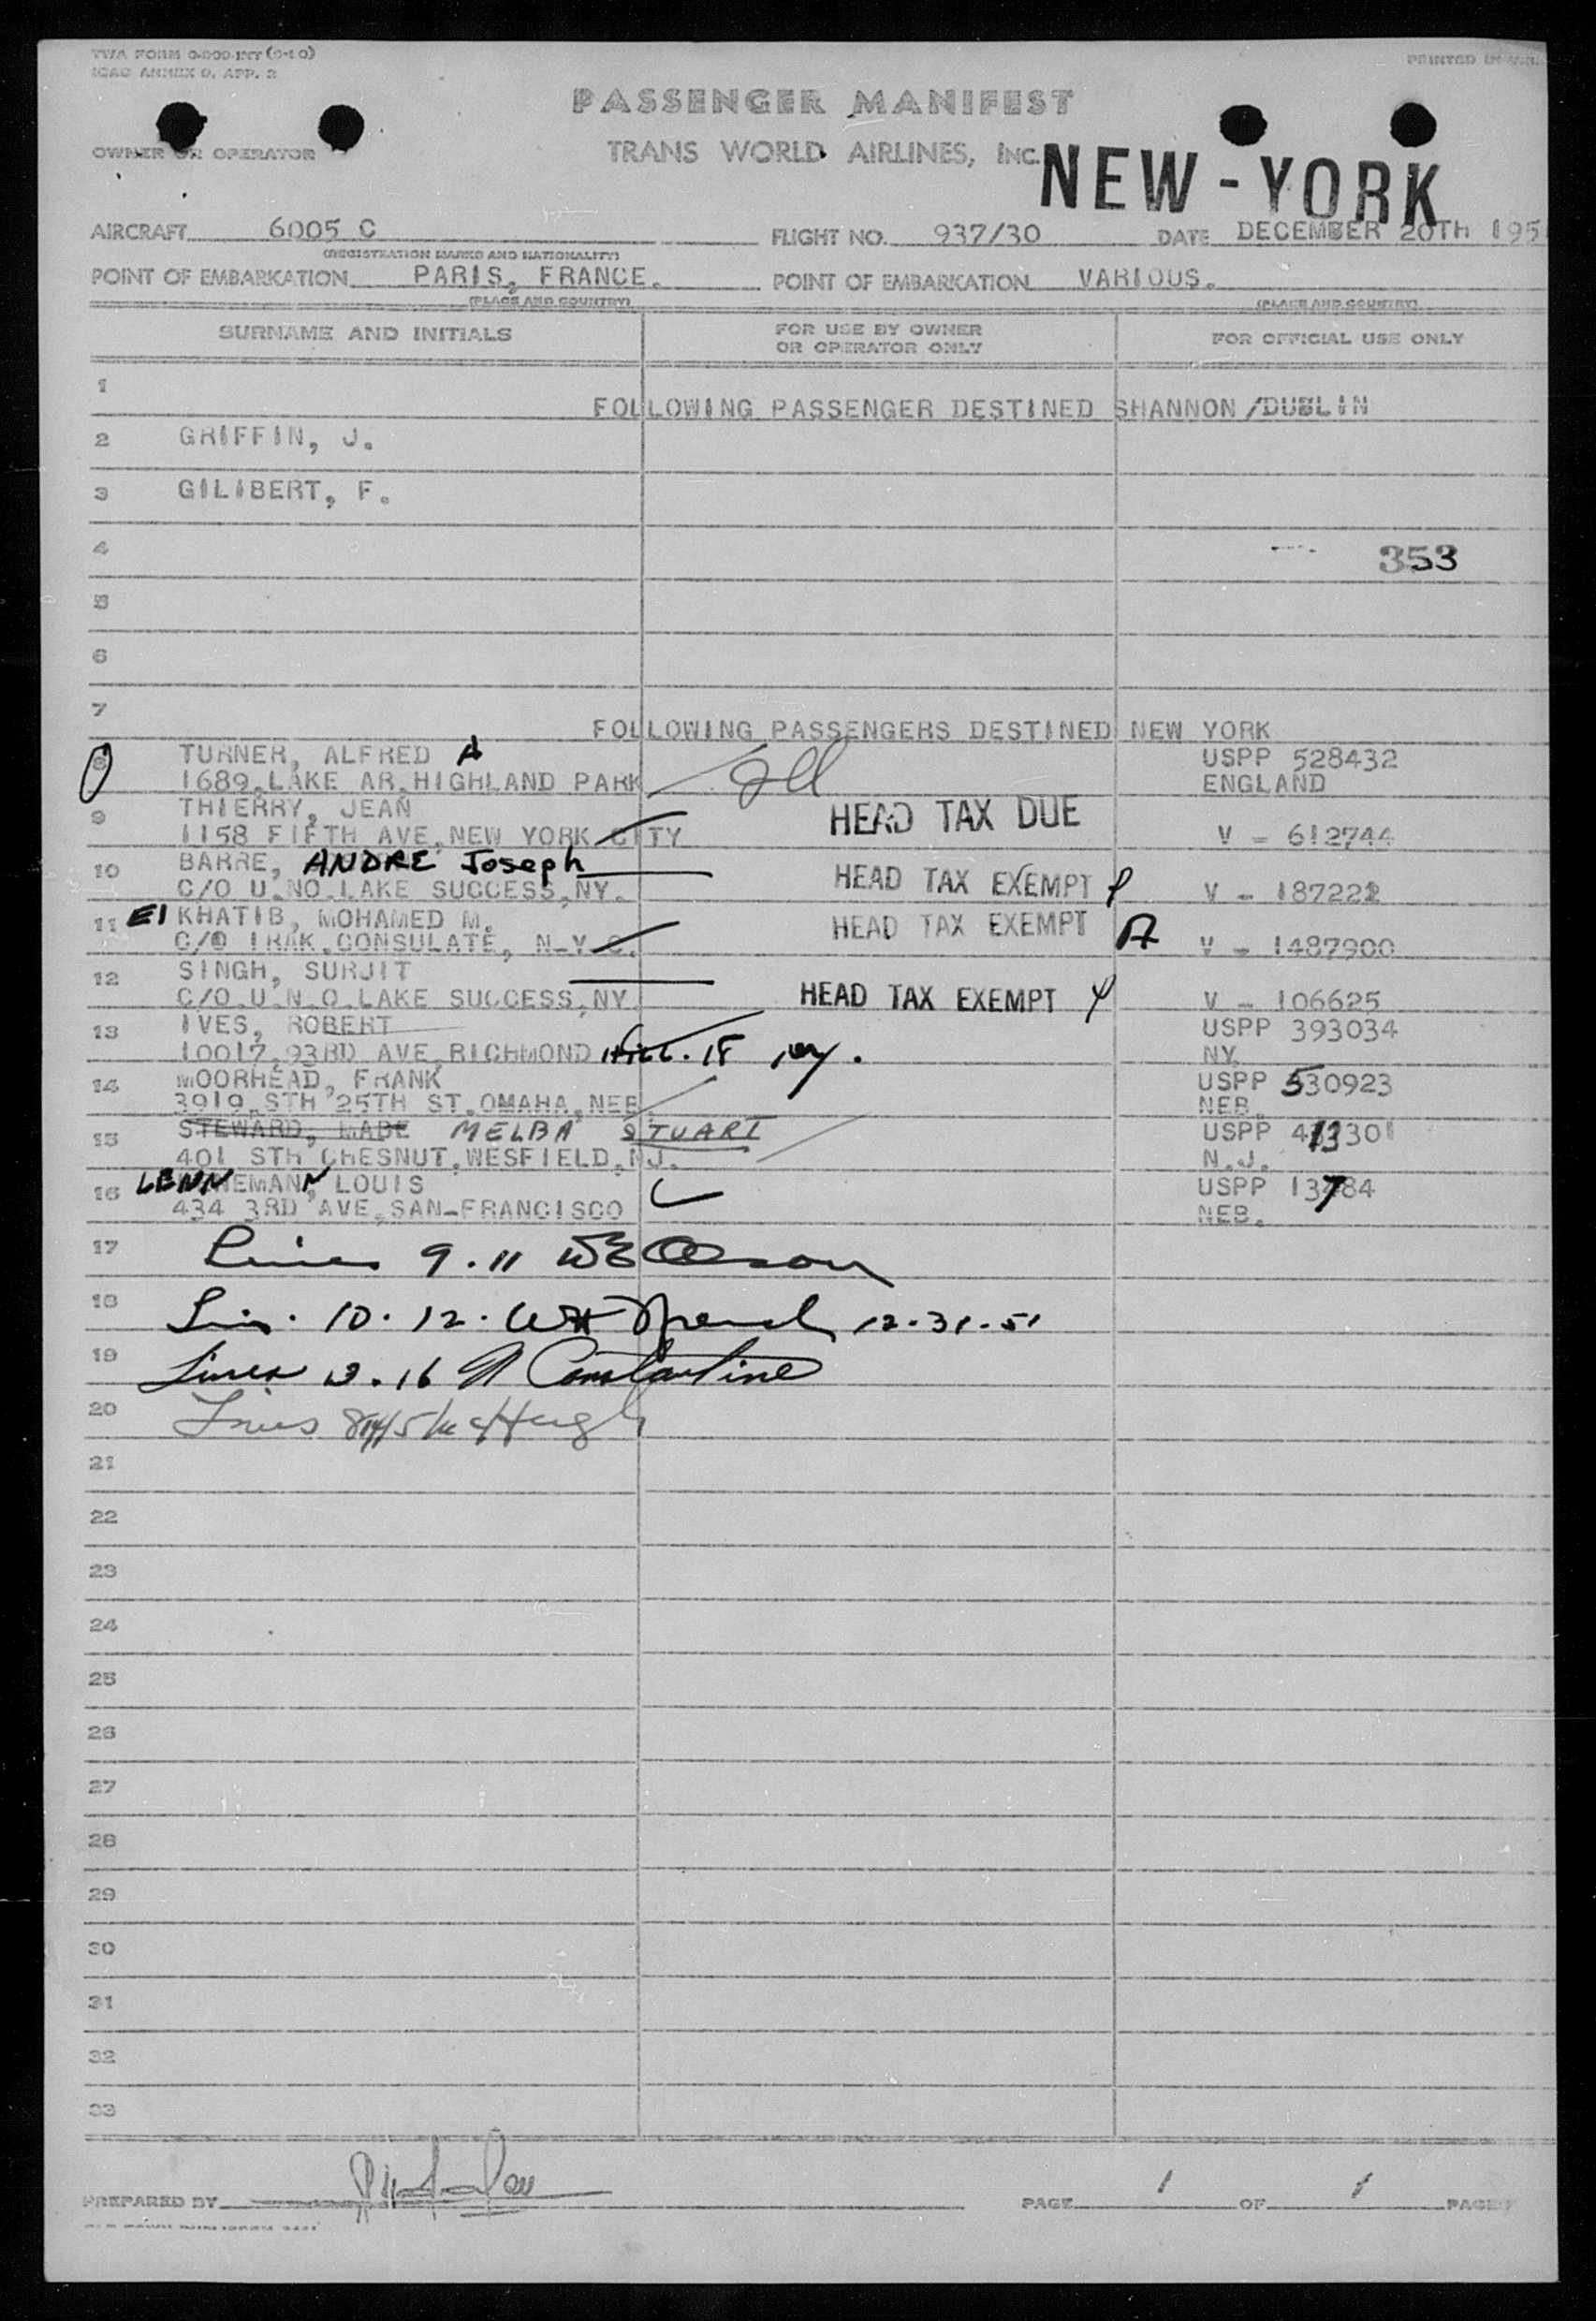 TWA FORM
ICAO ANNEX 9, APP. 2
PRINTED IN
PASSENGER MANIFEST
OWNER OR OPERATOR
TRANS WORLD AIRLINES, INC.
NEW-YORK
AIRCRAFT 6005 C FLIGHT NO. 937/30 DATE DECEMBER 20TH 195
(REGISTRATION MARKS AND NATIONALITY)
POINT OF EMBARKATION PARIS, FRANCE. POINT OF EMBARKATION VARIOUS.
(PLACE AND COUNTRY) (PLACE AND COUNTRY)
SURNAME AND INITIALS FOR USE BY OWNER OR OPERATOR ONLY FOR OFFICIAL USE ONLY
1
FOLLOWING PASSENGER DESTINED SHANNON /DUBLIN
2 GRIFFIN, J.
3 GILIBERT, F.
4 353
5
6
7
FOLLOWING PASSENGERS DESTINED NEW YORK
8 TURNER, ALFRED A USPP 528432
1689.LAKE AR.HIGHLAND PARK ENGLAND
9 THIERRY, JEAN HEAD TAX DUE
1158 FIFTH AVE.NEW YORK CITY V - 612744
10 BARRE, ANDRE Joseph HEAD TAX EXEMPT
C/O U.NO.LAKE SUCCESS,NY. V - 187222
11 El KHATIB, MOHAMED M. HEAD TAX EXEMPT A
C/O IRAK.CONSULATE, N-Y-C. V - 1487900
12 SINGH, SURJIT HEAD TAX EXEMPT
C/O.U.N.O.LAKE SUCCESS,NY V - 106625
13 IVES, ROBERT USPP 393034
10017.93RD AVE.RICHMOND Hill. 18 NY. NY.
14 MOORHEAD, FRANK USPP 530923
3919.STH 25TH ST.OMAHA,NEB. NEB.
15 STEWARD, MABE MELBA STUART USPP 413301
401 STH CHESNUT.WESFIELD,NJ. N.J.
16 LENNEMANN, LOUIS USPP 13784
434 3RD AVE.SAN-FRANCISCO NEB.
17 Lines 9.11 Olson
18 Lin. 10.12. 12-31-51
19 Lines 13.16 Constantine
20 Lines 8 14 15 McHugh
21
22
23
24
25
26
27
28
29
30
31
32
33
PREPARED BY PAGE 1 OF 1 PAGES